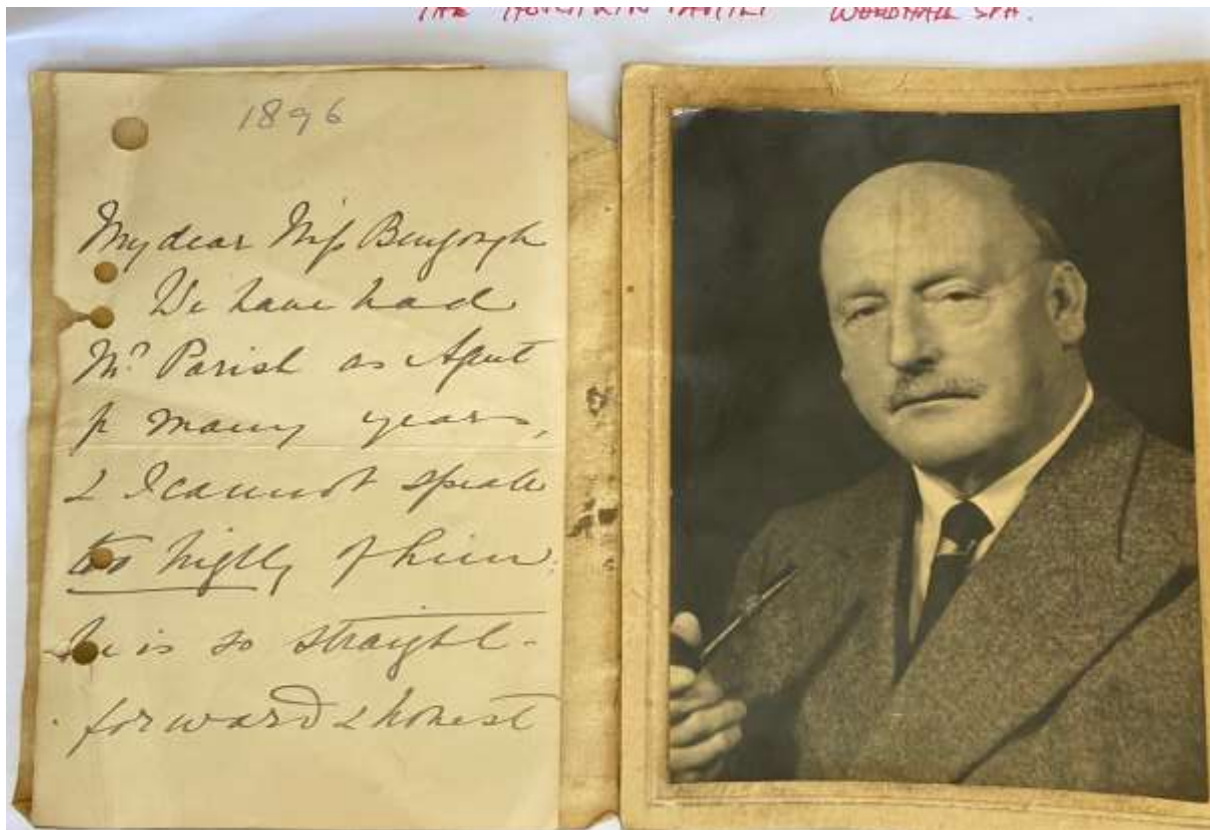 WOODHALL SPA.
1896
My dear Miss Bengough
We have had
Mr Parish as Agent
fr many years,
& I cannot speak
too highly of him.
he is so straight-
forward & honest